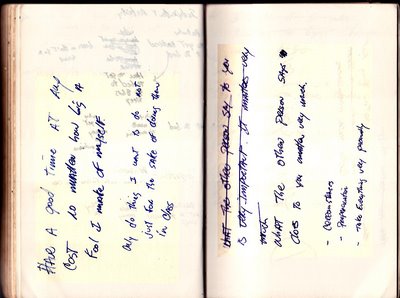 HAVE A good time AT ANY
COST NO matter how big A
Fool I make of myself
Only do things I want to do not
just for the sake of doing them
in class
WHAT THE other person say to you
is very important. It matters very
much
WHAT THE other person says
does to you matter very much.
- Circumstances
- Preparation
- Take Everything very